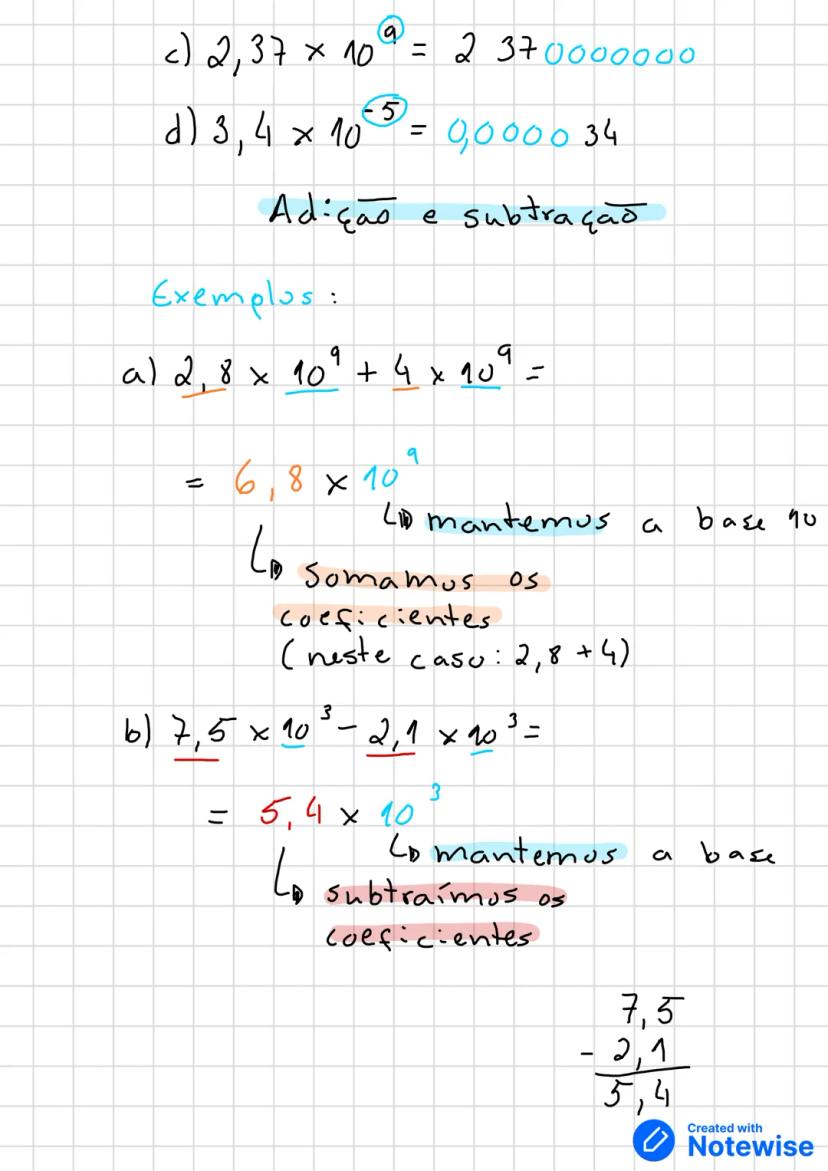 c) 2,37 × 10⁹ = 2 370000000
d) 3,4 × 10⁻⁵ = 0,0000 34
Adição e subtração
Exemplos:
a) 2,8 × 10⁹ + 4 × 10⁹ =
= 6,8 × 10⁹
↳ mantemos a base 10
↳ somamos os
coeficientes
(neste caso: 2,8 + 4)
b) 7,5 × 10³ - 2,1 × 10³ =
= 5,4 × 10³
↳ mantemos a base
↳ subtraímos os
coeficientes
7,5
- 2,1
5,4
Created with
Notewise